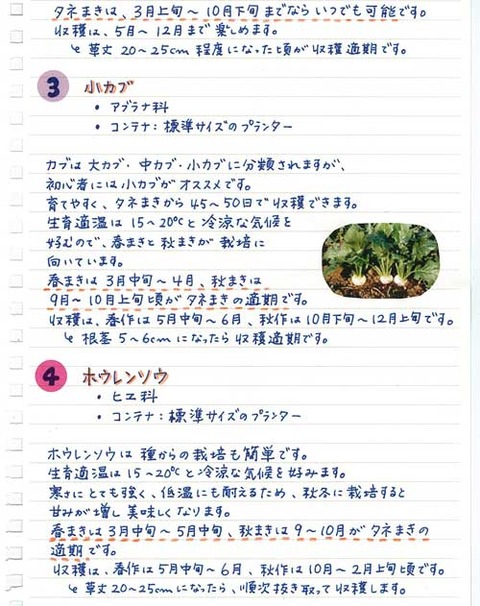 タネまきは、3月上旬～10月下旬までならいつでも可能です。
収穫は、5月～12月まで楽しめます。
↳ 草丈20～25cm程度になった頃が収穫適期です。
3 小カブ
・アブラナ科
・コンテナ：標準サイズのプランター
カブは大カブ・中カブ・小カブに分類されますが、
初心者には小カブがオススメです。
育てやすく、タネまきから45～50日で収穫できます。
生育適温は15～20℃と冷涼な気候を
好むので、春まきと秋まきが栽培に
向いています。
春まきは3月中旬～4月、秋まきは
9月～10月上旬頃がタネまきの適期です。
収穫は、春作は5月中旬～6月、秋作は10月下旬～12月上旬です。
↳ 根茎5～6cmになったら収穫適期です。
4 ホウレンソウ
・ヒユ科
・コンテナ：標準サイズのプランター
ホウレンソウは種からの栽培も簡単です。
生育適温は15～20℃と冷涼な気候を好みます。
寒さにとても強く、低温にも耐えるため、秋冬に栽培すると
甘みが増し美味しくなります。
春まきは3月中旬～5月中旬、秋まきは9～10月がタネまきの
適期です。
収穫は、春作は5月中旬～6月、秋作は10月～2月上旬頃です。
↳ 草丈20～25cmになったら、順次抜き取って収穫します。